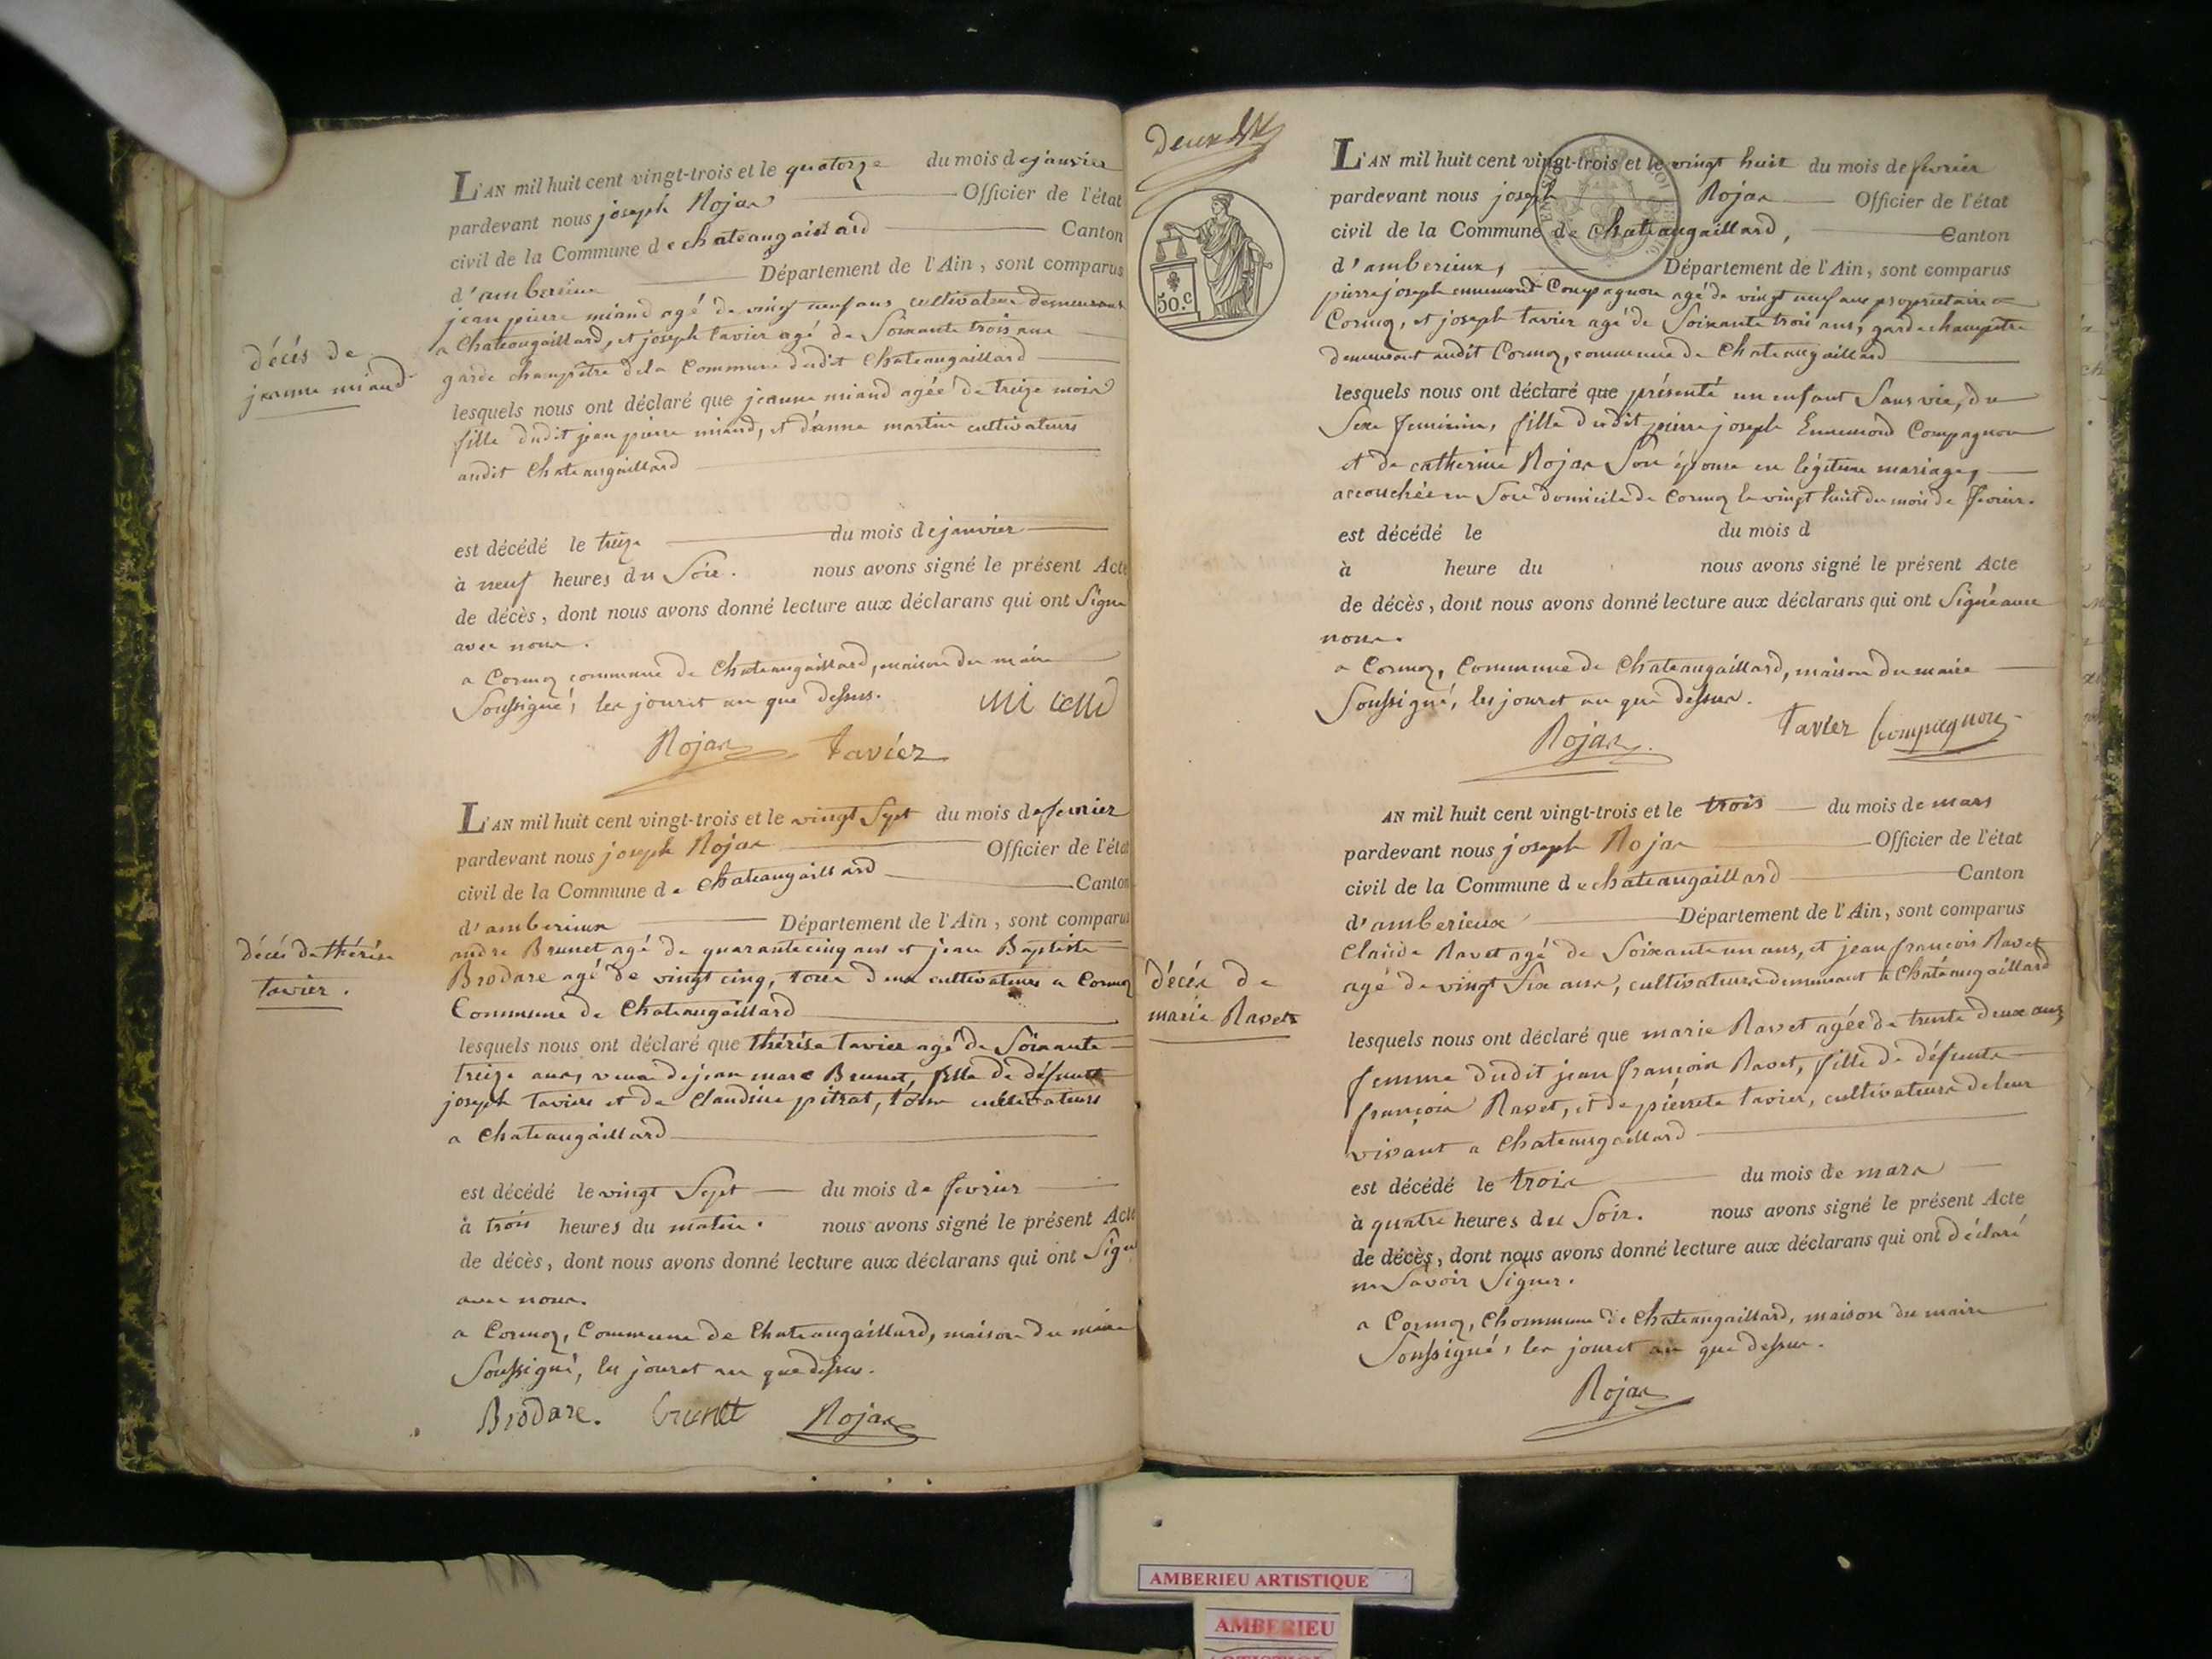 décès de
jeanne miand
L'AN mil huit cent vingt-trois et le quatorze du mois de janvier
pardevant nous joseph Rojas Officier de l'état
civil de la Commune de chateaugaillard Canton
d'amberieux Département de l'Ain, sont comparus
jean pierre miand agé de vingt neuf ans cultivateur demeurant
a Chateaugaillard, et joseph tavier agé de Soixante trois ans
garde champêtre de la Commune dudit Chateaugaillard
lesquels nous ont déclaré que jeanne miand agée de treize mois
fille dudit jean pierre miand, et d'anne martin cultivateurs
audit Chateaugaillard
est décédé le treize du mois de janvier
à neuf heures du Soir. nous avons signé le présent Acte
de décès, dont nous avons donné lecture aux déclarans qui ont Signé
avec nous.
a Cormoz commune de Chateaugaillard, maison du maire
Soussigné, les jour et an que dessus.
Rojas tavier
décès de thérése
tavier.
L'AN mil huit cent vingt-trois et le vingt Sept du mois de fevrier
pardevant nous joseph Rojas Officier de l'état
civil de la Commune de Chateaugaillard Canton
d'amberieux Département de l'Ain, sont comparus
andre Brunet agé de quarante cinq ans et jean Baptiste
Brodare agé de vingt cinq, tous deux cultivateurs a Cormoz
Commune de Chateaugaillard
lesquels nous ont déclaré que thérése tavier agé de Soixante
treize ans, veuve de jean marc Brunet, fille de défunt
joseph tavier et de Claudine pitrat, tous cultivateurs
a Chateaugaillard
est décédé le vingt Sept du mois de fevrier
à trois heures du matin. nous avons signé le présent Acte
de décès, dont nous avons donné lecture aux déclarans qui ont Signé
avec nous.
a Cormoz, Commune de Chateaugaillard, maison du maire
Soussigné, les jour et an que dessus.
Brodare. brunet Rojas
deux
50.c
L'AN mil huit cent vingt-trois et le vingt huit du mois de fevrier
pardevant nous joseph Rojas Officier de l'état
civil de la Commune de Chateaugaillard, Canton
d'amberieux, Département de l'Ain, sont comparus
pierre joseph ennemond Compagnon agé de vingt neuf ans proprietaire a
Cormoz, et joseph tavier agé de Soixante trois ans, garde champêtre
demeurant audit Cormoz, commune de Chateaugaillard
lesquels nous ont déclaré que présenté un enfant Sans vie, du
Sexe feminin, fille dudit pierre joseph Ennemond Compagnon
et de catherine Rojas Son épouse en légitime mariage,
accouchée en Son domicile de Cormoz le vingt huit du mois de fevrier.
est décédé le du mois d
à heure du nous avons signé le présent Acte
de décès, dont nous avons donné lecture aux déclarans qui ont Signé avec
nous.
a Cormoz, Commune de Chateaugaillard, maison du maire
Soussigné, les jour et an que dessus.
Rojas. tavier Compagnon
décés de
marie Ravet
AN mil huit cent vingt-trois et le trois du mois de mars
pardevant nous joseph Rojas Officier de l'état
civil de la Commune de chateaugaillard Canton
d'amberieux Département de l'Ain, sont comparus
Claude Ravet agé de Soixante un ans, et jean françois Ravet
agé de vingt Six ans, cultivateurs demeurant a Chateaugaillard
lesquels nous ont déclaré que marie Ravet agée de trente deux ans,
femme dudit jean françois Ravet, fille de défunts
françois Ravet, et de pierrete tavier, cultivateurs de leur
vivant a Chateaugaillard
est décédé le trois du mois de mars
à quatre heures du Soir. nous avons signé le présent Acte
de décès, dont nous avons donné lecture aux déclarans qui ont déclaré
ne Savoir Signer.
a Cormoz, Chommune de Chateaugaillard, maison du maire
Soussigné, les jour et an que dessus.
Rojas
AMBERIEU ARTISTIQUE
AMBERIEU